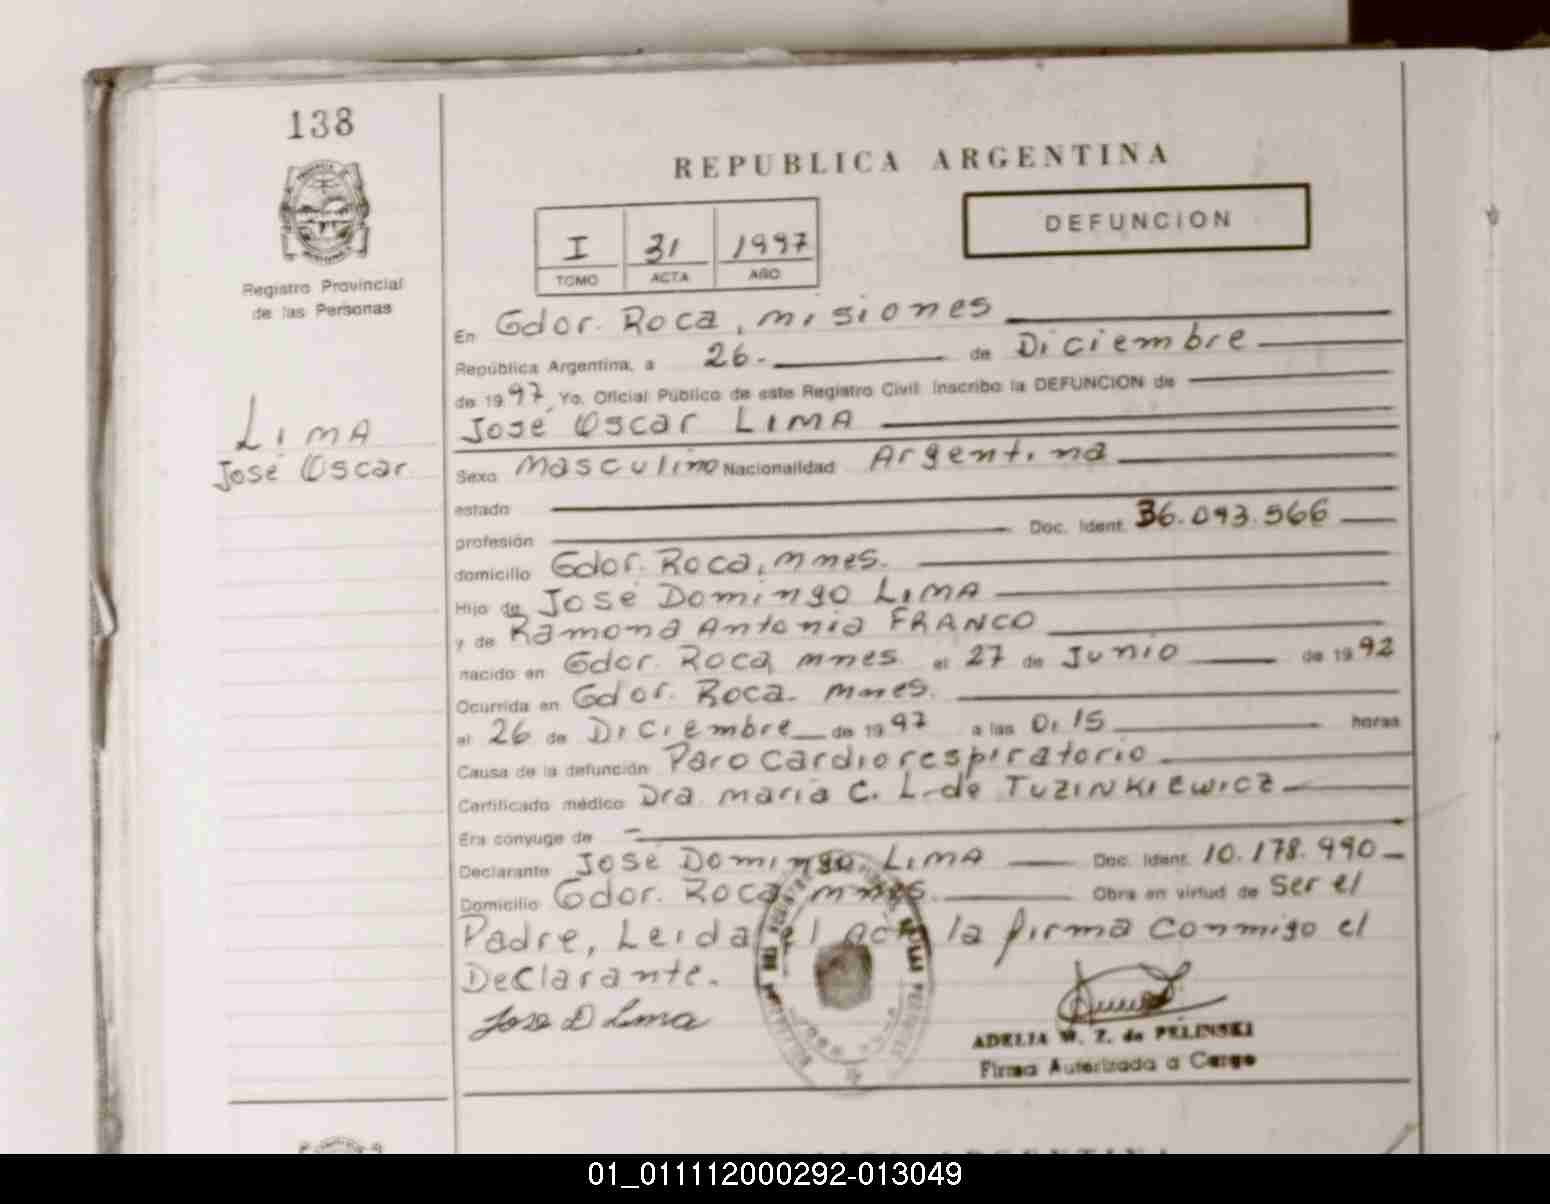 138
REPUBLICA ARGENTINA
DEFUNCION
I 31 1997
TOMO ACTA AÑO
Registro Provincial
de las Personas
En Gdor. Roca, misiones
República Argentina, a 26.- de Diciembre
de 1997, Yo, Oficial Público de este Registro Civil inscribo la DEFUNCION de
José Oscar LIMA
LIMA
José Oscar
Sexo Masculino Nacionalidad Argentina
estado
profesión Doc. Ident. 36.093.566
domicilio Gdor. Roca, mnes.
Hijo de José Domingo LIMA
y de Ramona Antonia FRANCO
nacido en Gdor. Roca mnes. el 27 de Junio de 1992
Ocurrida en Gdor. Roca. mnes.
el 26 de Diciembre de 1997 a las 0,15 horas
Causa de la defunción Paro cardiorespiratorio
Certificado médico Dra. maria C. L. de TUZINKIEWICZ
Era conyuge de
Declarante José Domingo LIMA Doc. Ident. 10.178.990
Domicilio Gdor. Roca, mnes. Obra en virtud de Ser el
Padre, Leida el acta la firma conmigo el
Declarante.
Jose D Lima
ADELIA W. Z. de PELINSKI
Firma Autorizada a Cargo
01_011112000292-013049